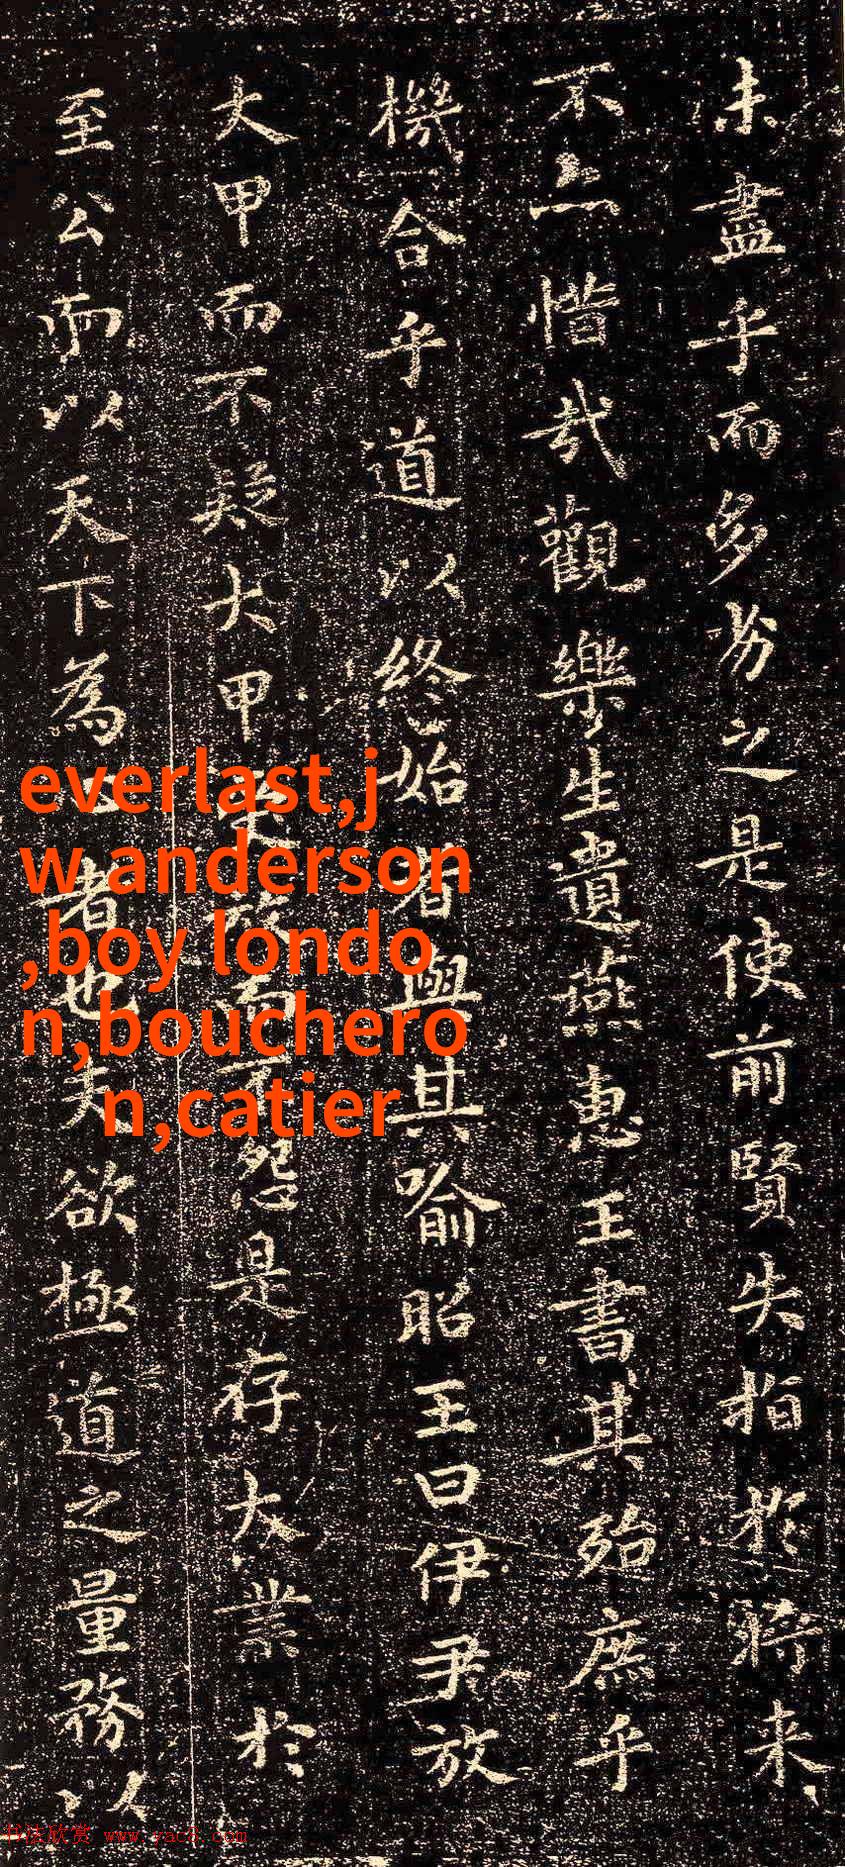 未盡乎而多劣之是使前賢失指於將来
不亦惜哉觀樂生遺燕惠王書其殆庶乎
機合乎道以終始者與其喻昭王曰伊尹放
大甲而不疑大甲受放而不怨是存大業於
至公而以天下為心者也夫欲極道之量務以
everlast,j
w anderson
,boy londo
n,bouchero
n,catier
书法欣赏 www.yac8.com